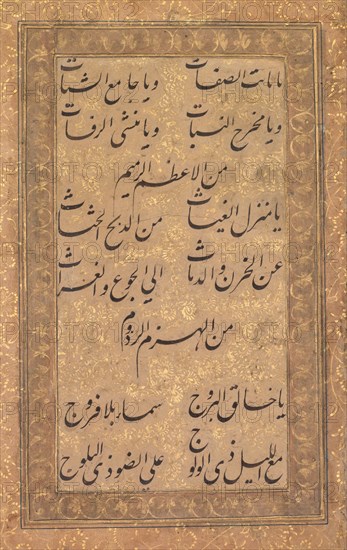 يا ثابت الصفات ويا جامع الشتات
ويا مخرج النبات ويا منشى الرفات
من الاعظم الرميم
يا منزل الغياث من الدلح الحثاث
عن الحزن والدماث الي الجوع والغراث
من الهزم الرزوم
يا خالق البروج سما بلا فروج
مع الليل ذي الولوج علي الضو ذي البلوج
PHOTO 12